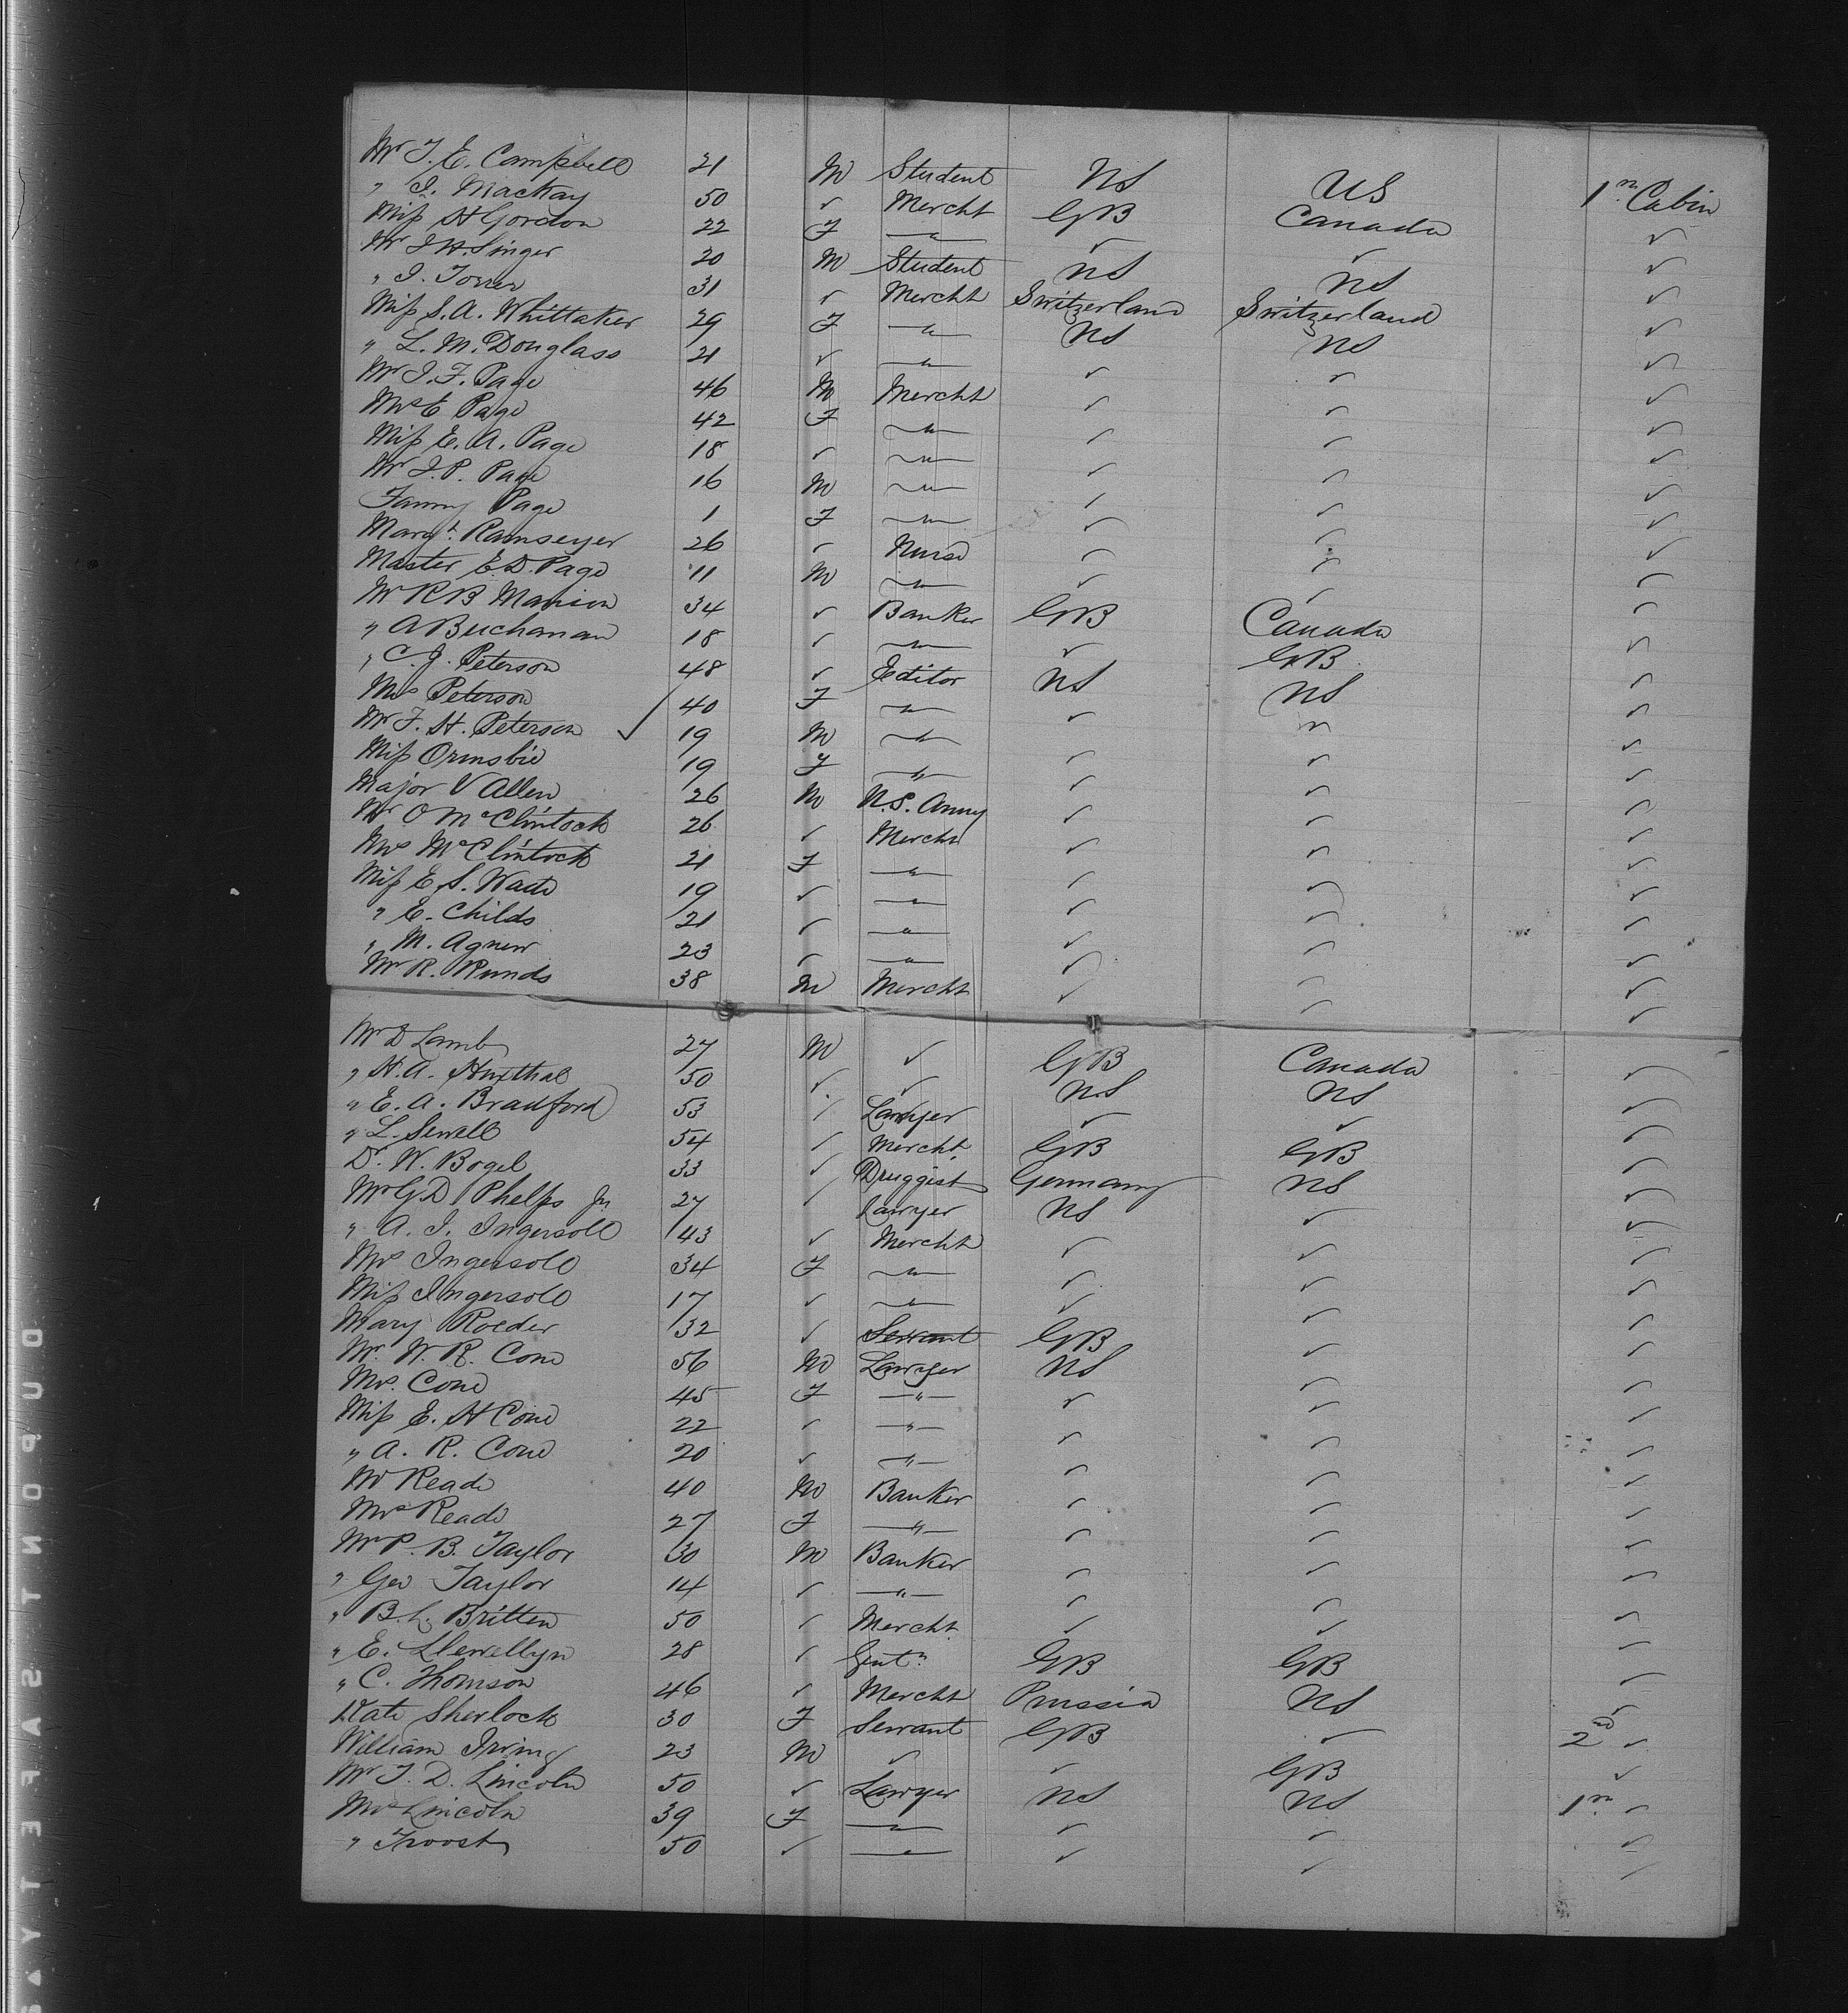 Mr T. E. Campbell 21 M Student US US 1st Cabin
" I. MacKay 50 ✓ Mercht GB Canada ✓
Miss H Gordon 22 F —"— ✓ ✓ ✓
Mr J H. Singer 20 M Student US US ✓
" I. 31 ✓ Mercht Switzerland Switzerland ✓
Miss S. A. Whittaker 29 F —"— US US ✓
" L. M. Douglass 21 ✓ —"— ✓ ✓ ✓
Mr J. F. Page 46 M Mercht ✓ ✓ ✓
Mrs E Page 42 F —"— ✓ ✓ ✓
Miss E. A. Page 18 ✓ —"— ✓ ✓ ✓
Mr J. P. Page 16 M —"— ✓ ✓ ✓
Fanny Page 1 F —"— ✓ ✓ ✓
Margt. Ramseyer 26 ✓ Nurse ✓ ✓ ✓
Master E. D. Page 11 M —"— ✓ ✓ ✓
Mr R B Manson 34 ✓ Banker GB Canada ✓
" A Buchanan 18 ✓ —"— ✓ GB ✓
" C. J. Peterson 48 ✓ Editor US US ✓
Mrs Peterson 40 F —"— ✓ ✓ ✓
Mr F. H. Peterson 19 M —"— ✓ ✓ ✓
Miss Ormsbie 19 F —"— ✓ ✓ ✓
Major V Allen 26 M U.S. Army ✓ ✓ ✓
Mr O McClintock 26 ✓ Mercht ✓ ✓ ✓
Mrs McClintock 21 F —"— ✓ ✓ ✓
Miss E. S. Wade 19 ✓ —"— ✓ ✓ ✓
" E. Childs 21 ✓ —"— ✓ ✓ ✓
" M. Agnew 23 ✓ —"— ✓ ✓ ✓
Mr R. Runds 38 M Mercht ✓ ✓ ✓
Mr D Lamb 27 M ✓ GB Canada ✓
" H. A. 50 ✓ ✓ US US ✓
" E. A. Bradford 53 ✓ Lawyer ✓ ✓ ✓
" L. Sewell 54 ✓ Mercht. GB GB ✓
Dr. W. Bogel 33 ✓ Druggist Germany US ✓
Mr G. D Phelps Jr 27 ✓ Lawyer US ✓ ✓
" A. I. Ingersoll 43 ✓ Mercht ✓ ✓ ✓
Mrs Ingersoll 34 F —"— ✓ ✓ ✓
Miss Ingersoll 17 ✓ —"— ✓ ✓ ✓
Mary Roeder 32 ✓ Servant GB ✓ ✓
Mr. W. R. Cone 56 M Lawyer US ✓ ✓
Mrs. Cone 45 F —"— ✓ ✓ ✓
Miss E. H Cone 22 ✓ —"— ✓ ✓ ✓
" A. R. Cone 20 ✓ —"— ✓ ✓ ✓
Mr Reade 40 M Banker ✓ ✓ ✓
Mrs Reade 27 F —"— ✓ ✓ ✓
Mr P. B. Taylor 30 M Banker ✓ ✓ ✓
" Geo Taylor 14 ✓ —"— ✓ ✓ ✓
" B. L. Britten 50 ✓ Mercht ✓ ✓ ✓
" E. Llewellyn 28 ✓ Gentn GB GB ✓
" C. Thomson 46 ✓ Mercht Prussia US ✓
Kate Sherlock 30 F Servant GB ✓ 2nd ✓
William Irving 23 M ✓ ✓ GB ✓
Mr T. D. Lincoln 50 ✓ Lawyer US US 1st ✓
Mrs Lincoln 39 F —"— ✓ ✓ ✓
" Troost 50 ✓ —"— ✓ ✓ ✓